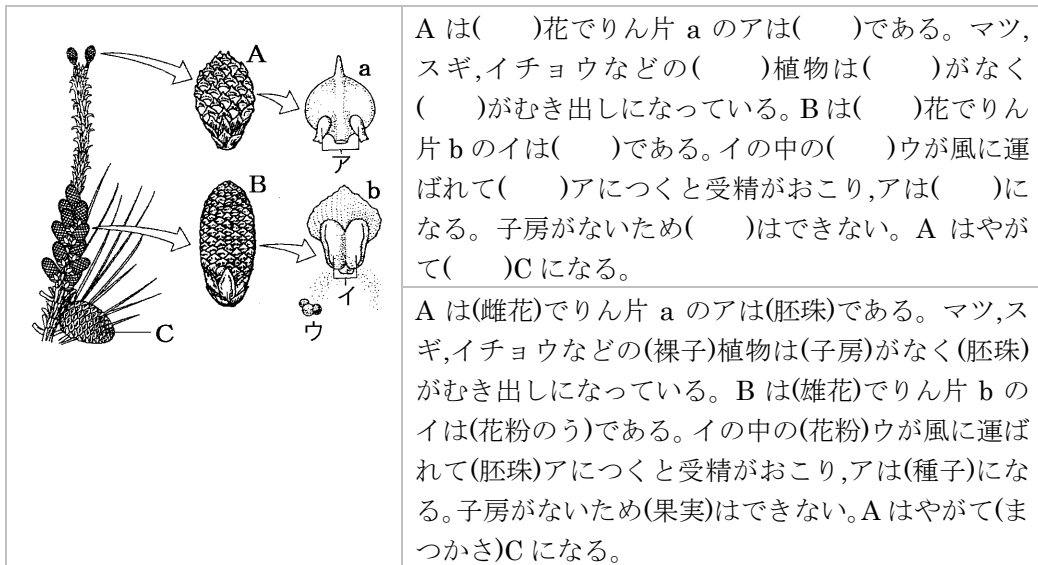 A
a
ア
B
b
イ
ウ
C
A は(　　)花でりん片 a のアは(　　)である。マツ,
スギ,イチョウなどの(　　)植物は(　　)がなく
(　　)がむき出しになっている。B は(　　)花でりん
片 b のイは(　　)である。イの中の(　　)ウが風に運
ばれて(　　)アにつくと受精がおこり,アは(　　)に
なる。子房がないため(　　)はできない。A はやが
て(　　)C になる。
A は(雌花)でりん片 a のアは(胚珠)である。マツ,ス
ギ,イチョウなどの(裸子)植物は(子房)がなく(胚珠)
がむき出しになっている。B は(雄花)でりん片 b の
イは(花粉のう)である。イの中の(花粉)ウが風に運ば
れて(胚珠)アにつくと受精がおこり,アは(種子)にな
る。子房がないため(果実)はできない。A はやがて(ま
つかさ)C になる。